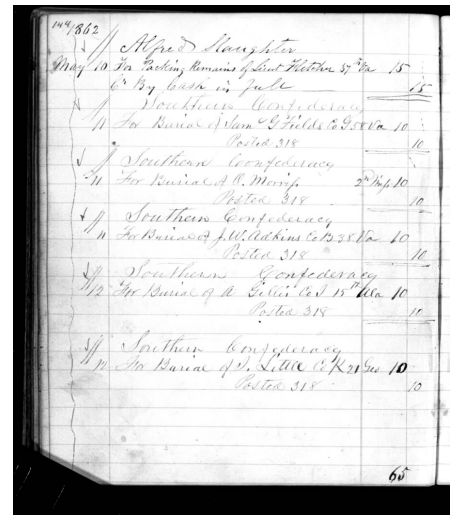 144 1862
Alfred Slaughter
May 10 For Packing Remains of Lieut Fletcher 57th Va 15
Cr By Cash in full 15
Southern Confederacy
11 For Burial of Sam G Fields Co G 58 Va 10
Posted 318 10
Southern Confederacy
11 For Burial of R. Morris 2nd Miss 10
Posted 318 10
Southern Confederacy
11 For Burial of J. W. Adkins Co B 38 Va 10
Posted 318 10
Southern Confederacy
12 For Burial of A Gillis Co I 15th Ala 10
Posted 318 10
Southern Confederacy
12 For Burial of J. Little Co K 21 Geo 10
Posted 318 10
65